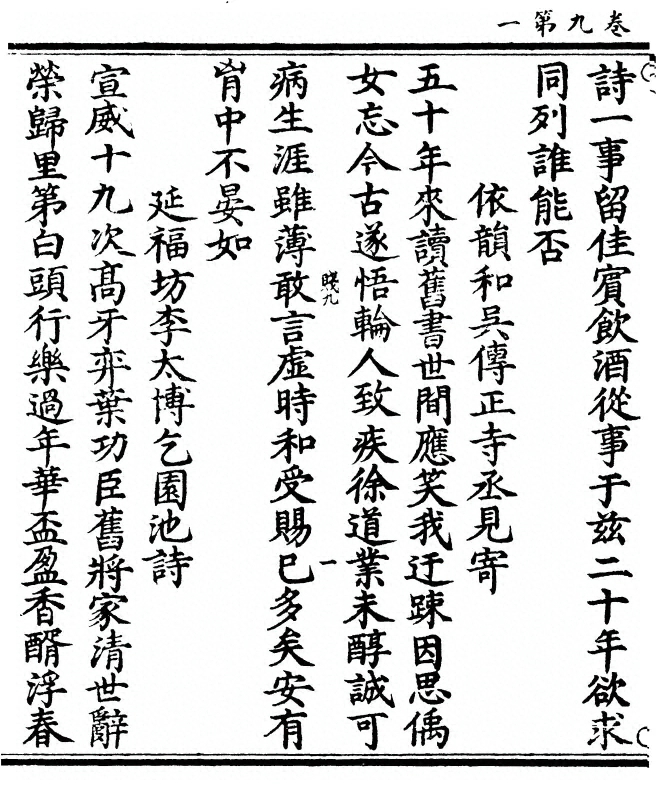 卷九第一
詩一事留佳賓飲酒從事于兹二十年欲求
同列誰能否
依韻和吳傳正寺丞見寄
五十年來讀舊書世間應笑我迂踈因思偊
女忘今古遂悟輪人致疾徐道業未醇誠可
賤九 一
病生涯雖薄敢言虛時和受賜已多矣安有
胷中不晏如
延福坊李太博乞園池詩
宣威十九次髙牙弈葉功臣舊將家清世辭
榮歸里第白頭行樂過年華盃盈香醑浮春